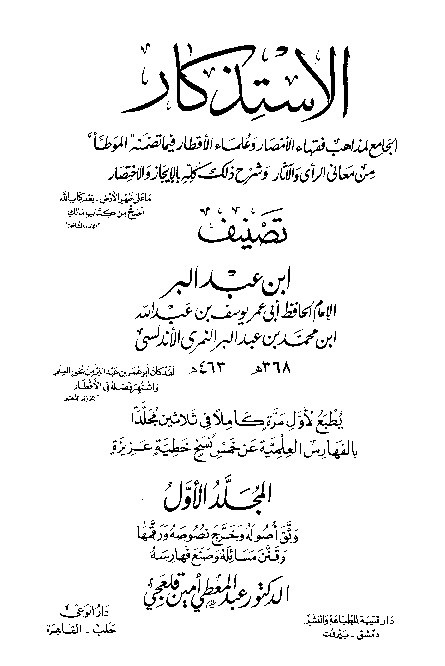 الاستذكار
الجامع لمذاهب فقهاء الأمصار وعلماء الأقطار فيما تضمنه الموطأ
من معاني الرأي والآثار وشرح ذلك كله بالإيجاز والاختصار
ما على ظهر الأرض - بعد كتاب الله
أصح من كتاب مالك
"الإمام الشافعي"
تصنيف
ابن عبد البر
الإمام الحافظ أبي عمر يوسف بن عبد الله
ابن محمد بن عبد البر النمري الأندلسي
٣٦٨هـ ٤٦٣هـ
لقد كان أبو عمر بن عبد البر من بحور العلم
واشتهر فضله في الأقطار
يُطبع لأول مرة كاملاً في ثلاثين مجلدًا
بالفهارس العلمية عن خمس نسخ خطية عزيزة
المجلد الأول
وثق أصوله وخرج نصوصه ورقمها
وقنن مسائله وصنع فهارسه
الدكتور عبد المعطي أمين قلعجي
دار قتيبة للطباعة والنشر
دمشق - بيروت
دار الوعي
حلب - القاهرة